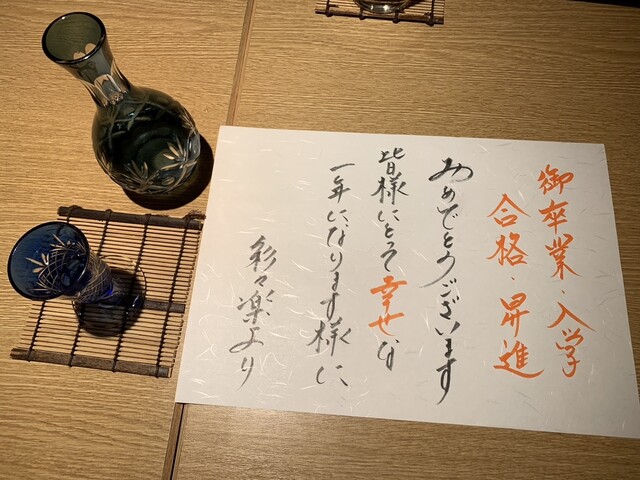 御卒業・入学
合格・昇進
おめでとうございます
皆様にとって幸せな
一年になります様に、
彩々楽より